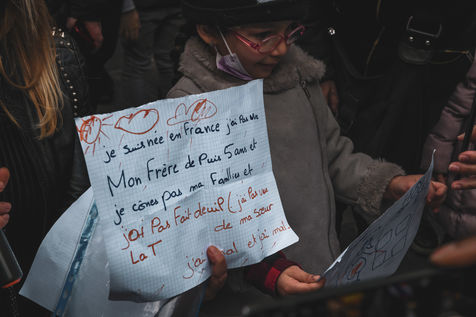 je suis née en France j'ai Pas vu
Mon Frère de Puis 5 ans et
je cones pas ma Familles et
j'ai Pas Fait deuil j'ai Pas vu
LaT de ma sœur
j'ai mal et j'ai mal.